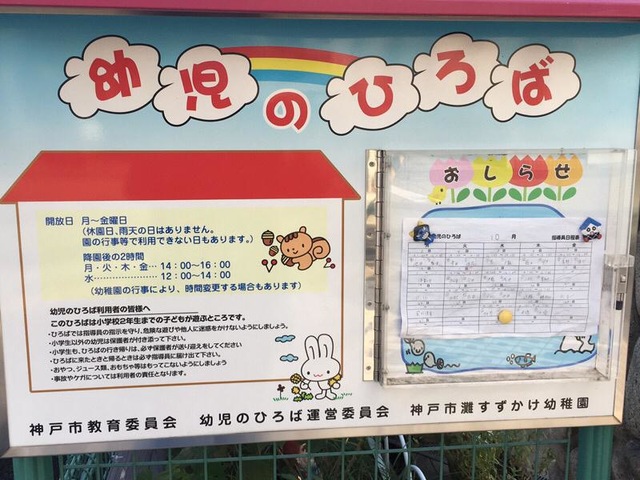 幼児のひろば
開放日 月～金曜日
(休園日、雨天の日はありません。
園の行事等で利用できない日もあります。)
降園後の2時間
月・火・木・金… 14:00～16:00
水……………… 12:00～14:00
(幼稚園の行事により、時間変更する場合もあります)
幼児のひろば利用者の皆様へ
このひろばは小学校2年生までの子どもが遊ぶところです。
・ひろばでは指導員の指示を守り、危険な遊びや他人に迷惑をかけないようにしましょう。
・小学生以外の幼児は保護者が付き添って下さい。
・小学生も、ひろばの行き帰りは、必ず保護者が送り迎えをしてください
・ひろばに来たときと帰るときは必ず指導員に届出て下さい。
・おやつ、ジュース類、おもちゃ等はもってこないようにしましょう
・事故やケガについては利用者の責任となります。
おしらせ
幼児のひろば 10月 指導員日程表
神戸市教育委員会 幼児のひろば運営委員会 神戸市灘すずかけ幼稚園